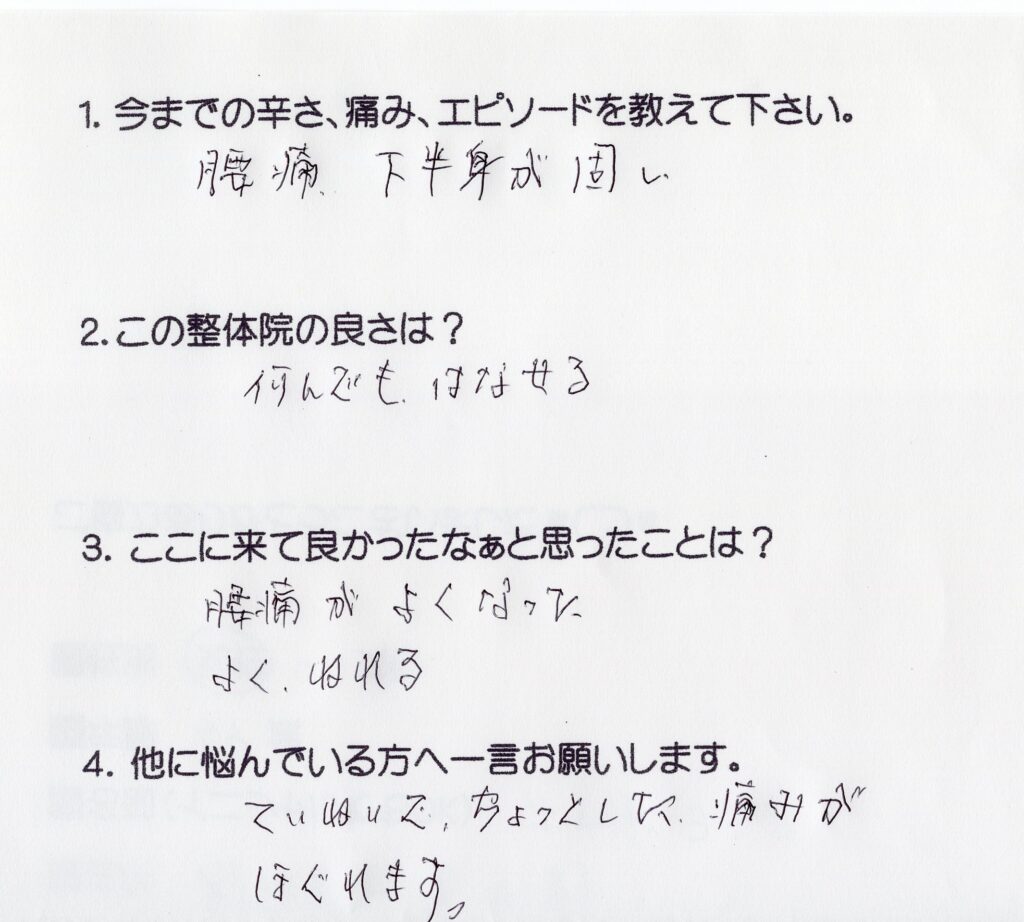 1. 今までの辛さ、痛み、エピソードを教えて下さい。
腰痛、下半身が固い
2.この整体院の良さは？
何んでも、はなせる
3. ここに来て良かったなぁと思ったことは？
腰痛がよくなった
よく、ねれる
4. 他に悩んでいる方へ一言お願いします。
ていねいで、ちょっとした、痛みが
ほぐれます。